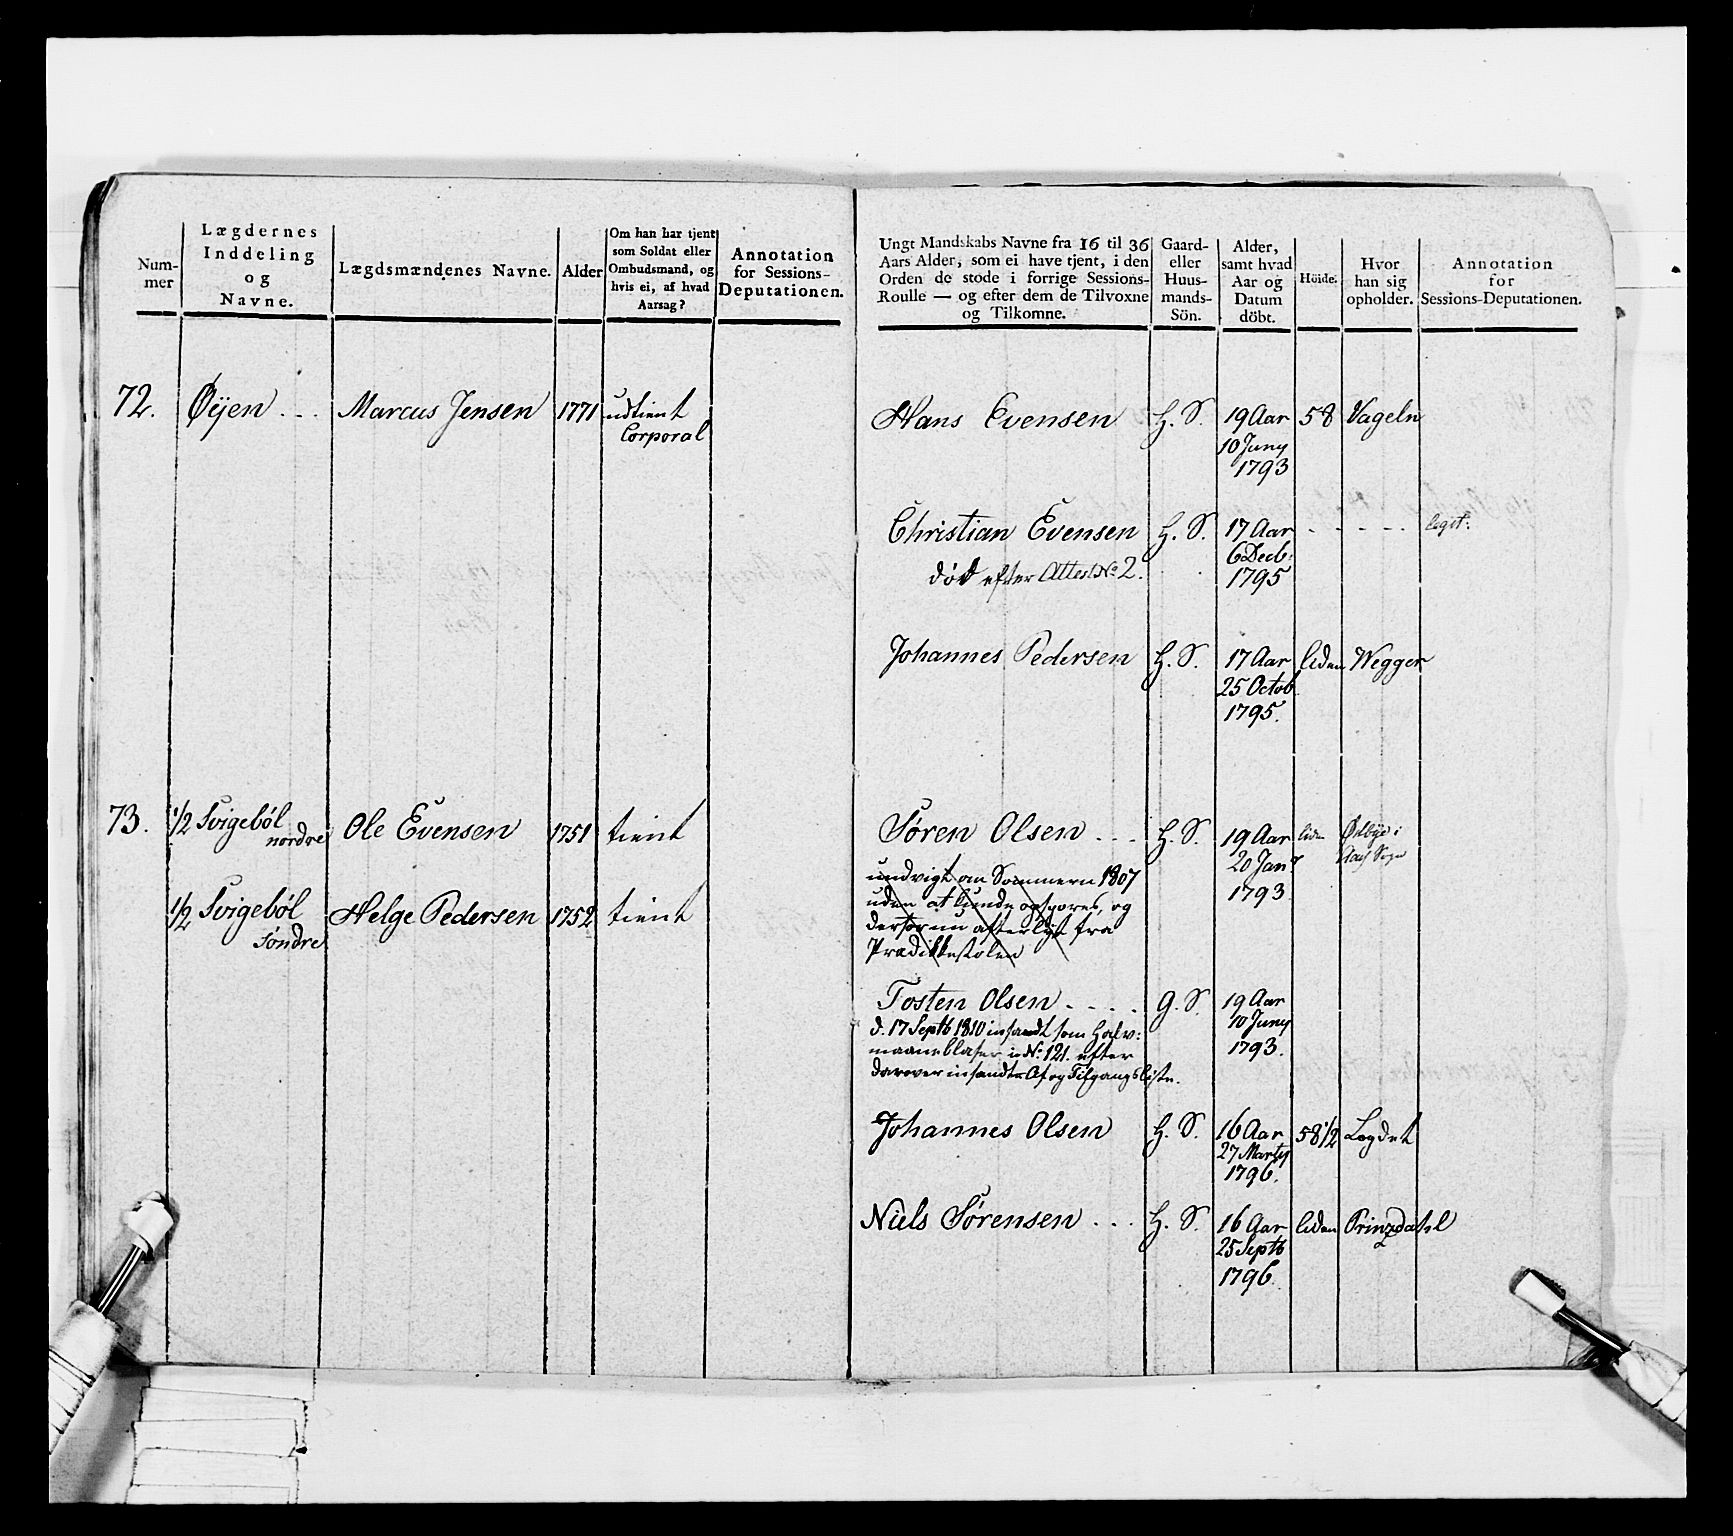 Num-
mer
Lægdernes
Inddeling
og
Navne.
Lægdsmændenes Navne.
Alder
Om han har tjent
som Soldat eller
Ombudsmand, og
hvis ei, af hvad
Aarsag?
Annotation
for Sessions-
Deputationen.
72. Øyen Marcus Jensen 1771 udtient
Corporal
73. 1/2 Svigebøl
nordre Ole Evensen 1751 tient
1/2 Svigebøl
Søndre Helge Pedersen 1752 tient
Ungt Mandskabs Navne fra 16 til 36
Aars Alder, som ei have tjent, i den
Orden de stode i forrige Sessions-
Roulle — og efter dem de Tilvoxne
og Tilkomne.
Gaard-
eller
Huus-
mands-
Sön.
Alder,
samt hvad
Aar og
Datum
döbt.
Höide.
Hvor
han sig
opholder.
Annotation
for
Sessions-Deputationen.
Hans Evensen H. S. 19 Aar 58 Vageln
10 Juny
1793
Christian Evensen H. S. 17 Aar - - - - -
død efter Attest No 2. 6 Decb:
1795
Johannes Pedersen H. S. 17 Aar liden Wegger
25 Octob
1795.
Søren Olsen - - - H. S. 19 Aar liden
20 Jan
1793.
undvigt om Sommern 1807
uden at kunde opspores, og
derfor nu efterlyst fra
Prædikkestolen
Tosten Olsen - - - - G. S. 19 Aar
10 Juny
1793.
d. 17 Septb 1810 insandt som Halv:
maaneblaser i No 121. efter
darover insandte Af og Tilgangsliste.
Johannes Olsen H. S. 16 Aar 58 1/2 Lægdet
27 Marty
1796.
Niels Sørensen - - - H. S. 16 Aar liden Prinzdahl
25 Septb
1796.